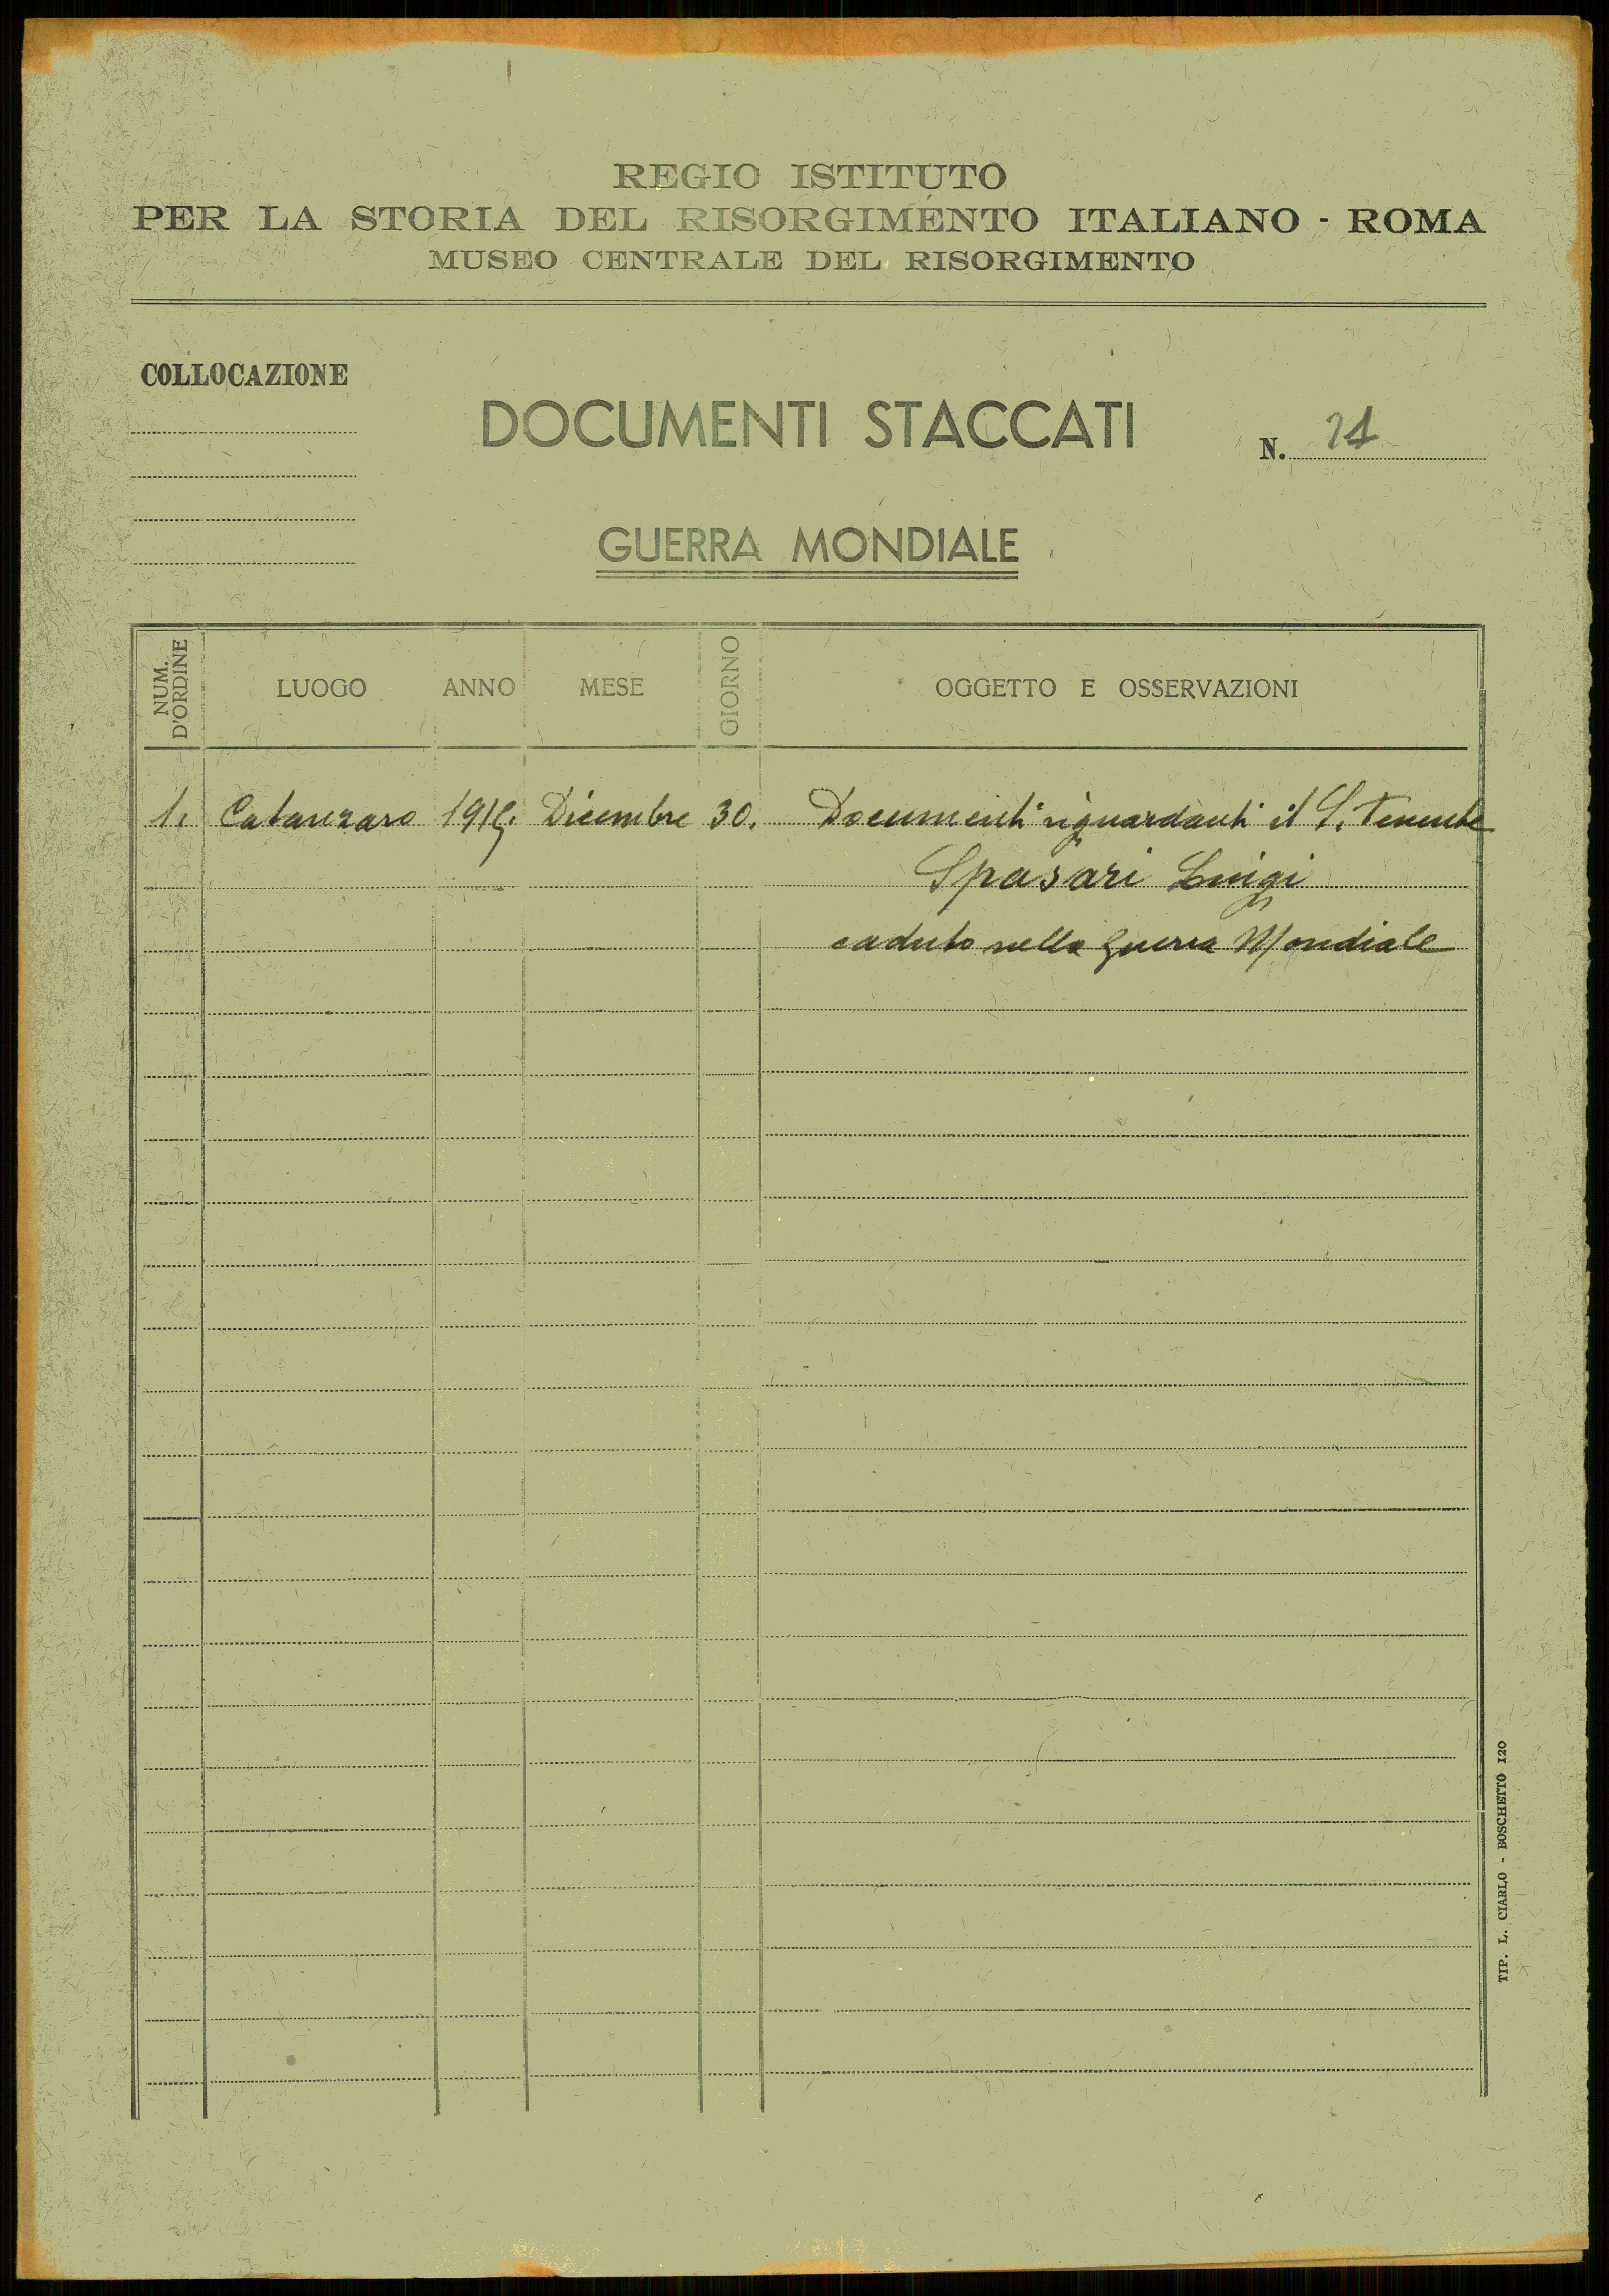 REGIO ISTITUTO
PER LA STORIA DEL RISORGIMENTO ITALIANO - ROMA
MUSEO CENTRALE DEL RISORGIMENTO
COLLOCAZIONE
DOCUMENTI STACCATI
N. 21
GUERRA MONDIALE
NUM. D'ORDINE LUOGO ANNO MESE GIORNO OGGETTO E OSSERVAZIONI
1. Catanzaro Dicembre 30. Documenti riguardanti il S. Tenente
Spasari Luigi
caduto nella guerra Mondiale
TIP. L. CIARLO - BOSCHETTO 120